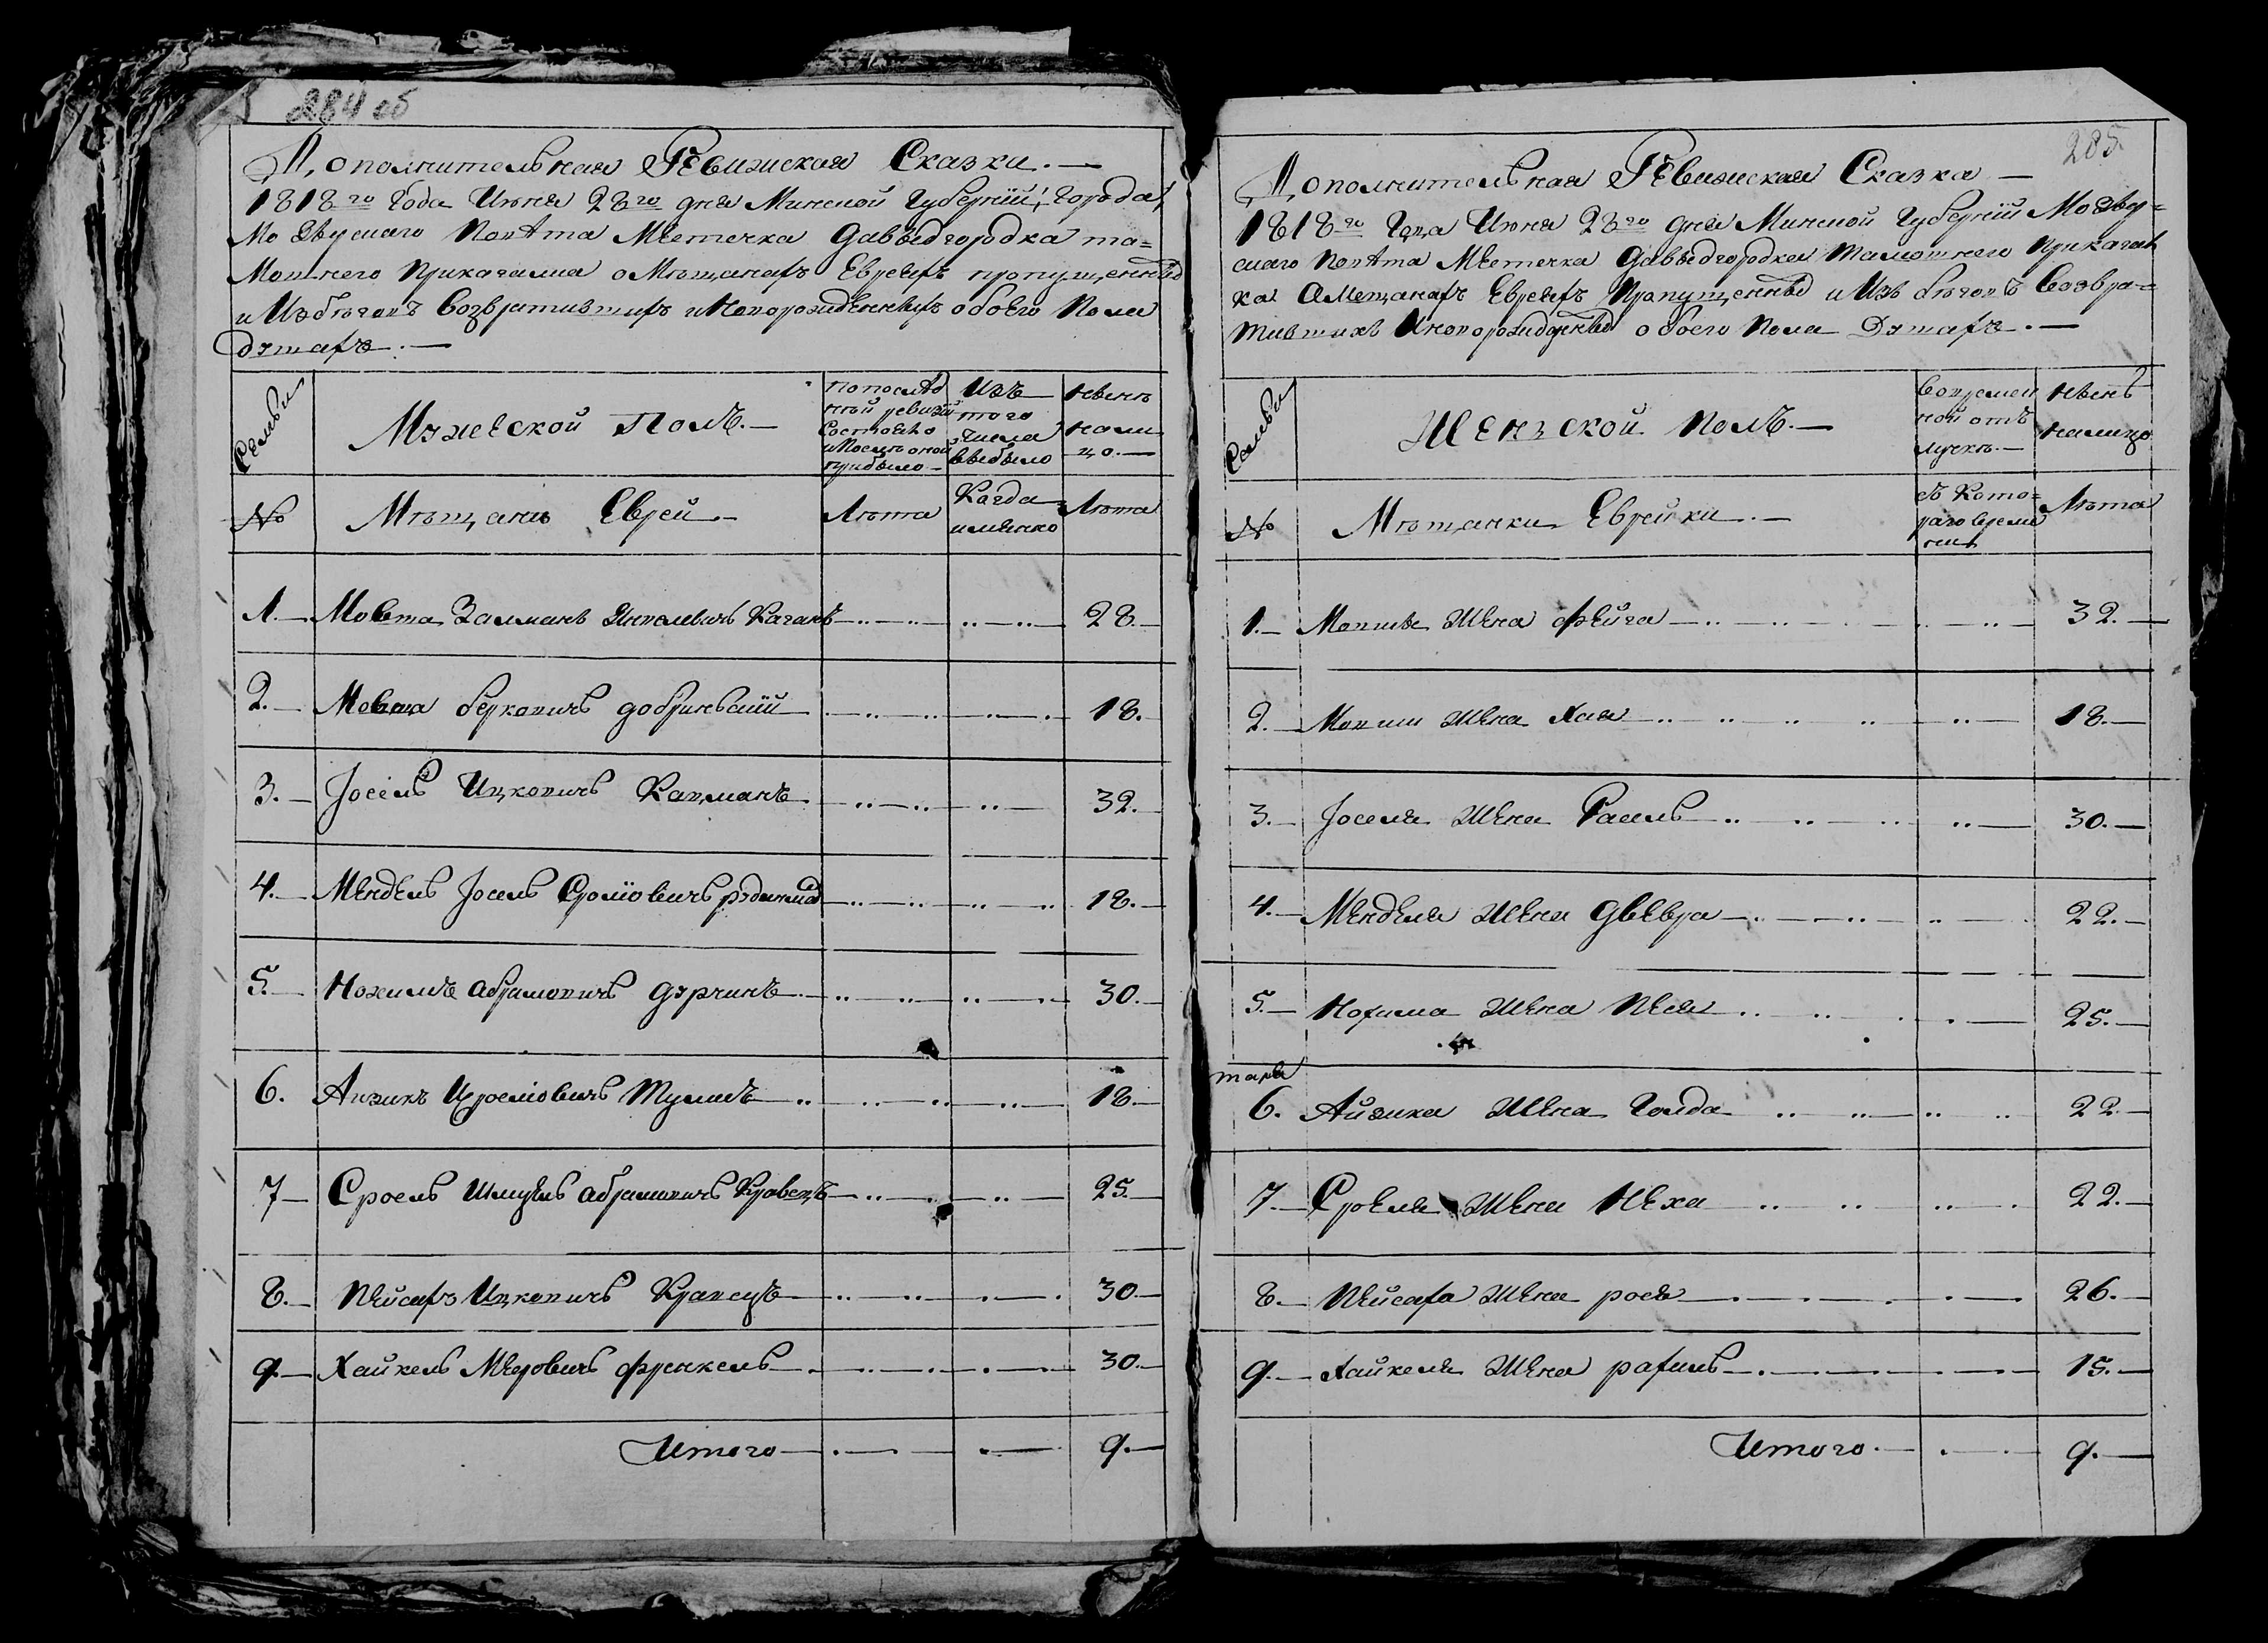 284 об
Дополнительная Ревижская Сказки. —
1818го Года Июня 28го дня Минской Губернiй, Города
Мозырскаго Повѣта Местечка Давыдгородка та=
Мошнего Прикагалка о Мѣщанахъ Евреяхъ пропущенных
и Изъ бѣговъ Возвратившихъ и Новорожденныхъ обоего Пола
дѣтахъ. —
Семьи
Мужеской Полъ. —
по послѣд
ней ревизiй
Состояло
и После оной
прибыло —
Изъ
того
числа
выбыло
Ныне
нали
цо. —
№
Мѣщани Еврей —
Лѣта
Когда
именно
Лѣта
1. — Мовша Залманъ Янкелевичъ Каганъ — 28. —
2. — Мовша берковичъ добриньский — 18. —
3. — Jосель Ицковичъ Кацманъ — 32. —
4. — Мендель Jосель Сролiовичъ — 18. —
5. — Нохимъ абрамовичъ дурчинъ — 30. —
6. Аизикъ Iзроелiовичъ Тулинъ — 18. —
7 — Сроель Шмуель абрамовичъ Кравецъ — 25. —
8. — Пейсахъ Ицковичъ Кравецъ — 30 —
9. — Хайкель Меровичъ френкель — 30. —
Итого — 9. —
285.
Дополнительная Ревижская Сказка —
1818го Года Июня 28го дня Минской Губернiй Мозыр=
скаго Повѣта Местечка Давыдгородка Тамошнего Прикагал
ка О Мещанахъ Евреяхъ Пропущенных и Изъ бѣговъ Возвра=
тившихъ И новорожденных обоего Пола Дѣтахъ. —
Семьи
Женской Полъ. —
Вовремен
ной отъ
лучкѣ. —
Ныне
налицо
№
Мѣщанки Еврейки. —
съ Кото=
раго време
ни
Лѣта
1. — Мовши Жена фейга — 32. —
2. — Мовши Жена Хая — 18. —
3. — Jоселя Жена Раиль — 30. —
4. — Менделя Жена Двевра — 22. —
5. — Нохима Жена Песя — 25. —
6. Айзика Жена Голда 22. —
7. — Сроеля Жена Неха 22. —
8. — Пейсаха Жена рося — 26. —
9. — Хайкеля Жена рахиль — 15. —
Итого. — 9. —